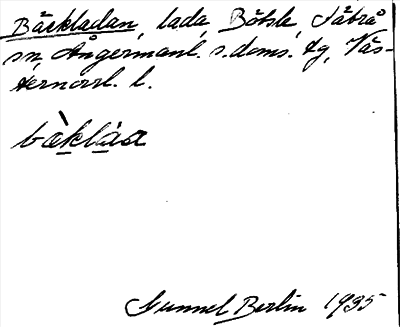 Bäckladan, lada, Bölsle, Sätrå
sn, Ångermanl. s. doms. tg, Väs-
ternorrl. l.
bæ̀klá̱a
Gunnel Berlin 1935